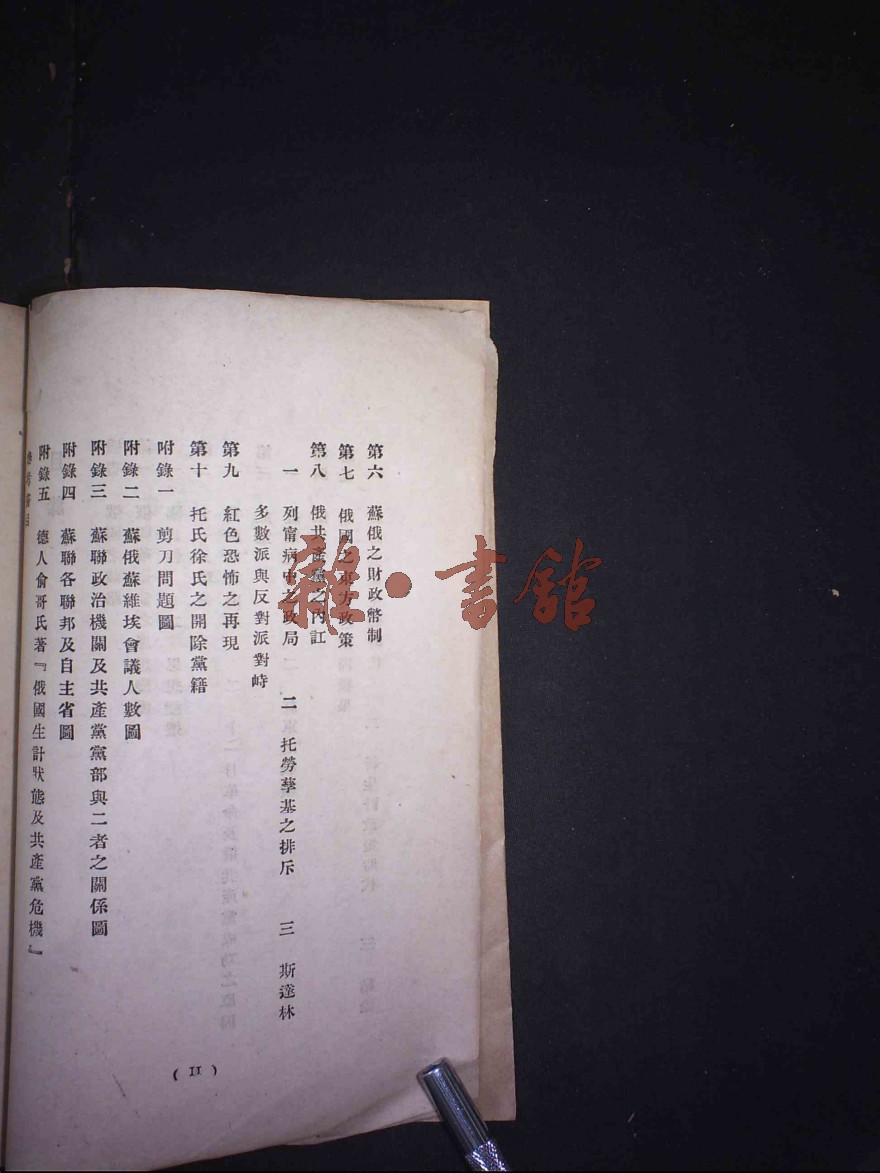 第六　蘇俄之財政幣制
第七　俄國之東方政策
第八　俄共產黨之內訌
一　列甯病中之政局　二　托勞孳基之排斥　三　斯達林
多數派與反對派對峙
第九　紅色恐怖之再現
第十　托氏徐氏之開除黨籍
附錄一　剪刀問題圖
附錄二　蘇俄蘇維埃會議人數圖
附錄三　蘇聯政治機關及共產黨黨部與二者之關係圖
附錄四　蘇聯各聯邦及自主省圖
附錄五　德人俞哥氏著『俄國生計狀態及共產黨危機』
( II )
雜・書館